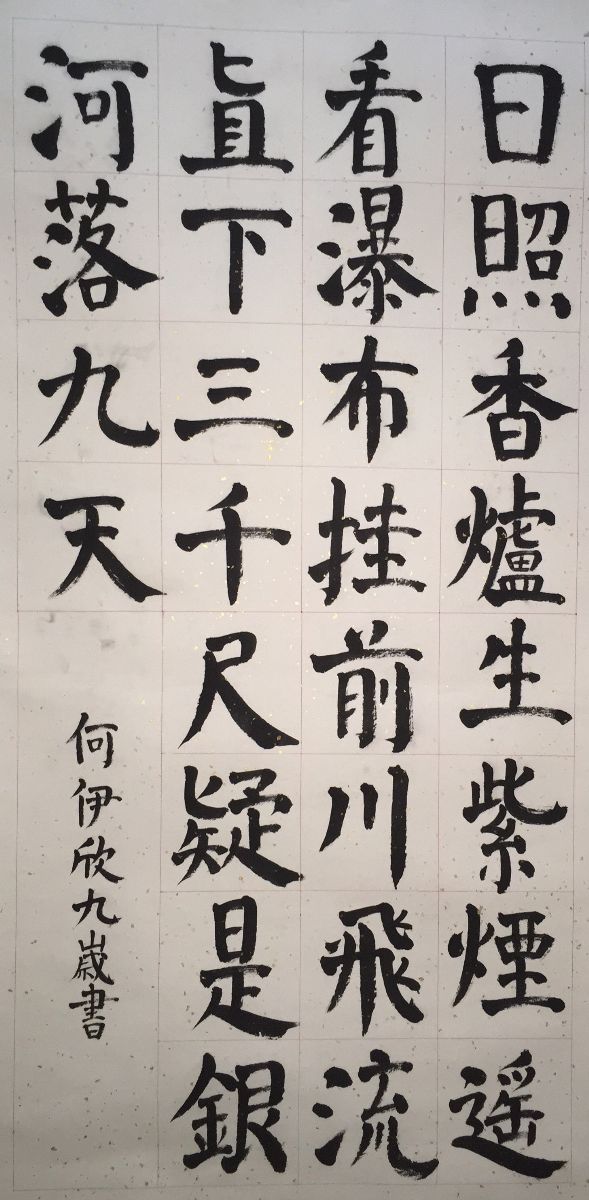 日照香爐生紫煙遥
看瀑布挂前川飛流
直下三千尺疑是銀
河落九天
何伊欣九歲書